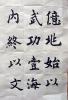 億兆始以
武功壹海
內終以文